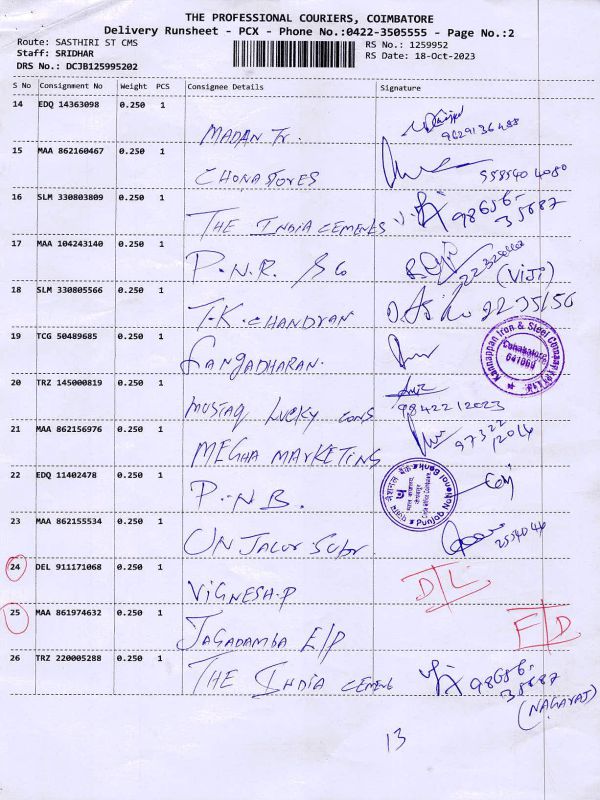 THE PROFESSIONAL COURIERS, COIMBATORE
Delivery Runsheet - PCX - Phone No.:0422-3505555 - Page No.:2
Route: SASTHIRI ST CMS
Staff: SRIDHAR
DRS No.: DCJB125995202
RS No.: 1259952
RS Date: 18-Oct-2023
S No Consignment No Weight PCS Consignee Details Signature
14 EDQ 14363098 0.250 1
MADAN Tr.
15 MAA 862160467 0.250 1
CHONA STORES
16 SLM 330803809 0.250 1
THE INDIA CEMENTS 98656-35687
17 MAA 104243140 0.250 1
P.N.R. & Co (VIJI)
18 SLM 330805566 0.250 1
T.K. CHANDRAN 2235156
19 TCG 50489685 0.250 1
GANGADHARAN. Kannappan Iron & Steel Company (P) Ltd Coimbatore
20 TRZ 145000819 0.250 1
MUSTAQ LUCKY CONS 9842212023
21 MAA 862156976 0.250 1
MEGHA MARKETING
22 EDQ 11402478 0.250 1
P.N.B. Punjab National Bank
23 MAA 862155534 0.250 1
24 DEL 911171068 0.250 1
VIGNESH.P D/L
25 MAA 861974632 0.250 1
JAGADAMBA E/P
26 TRZ 220005288 0.250 1
THE INDIA CEMENT 98656-35687
(NAGARAJ)
13